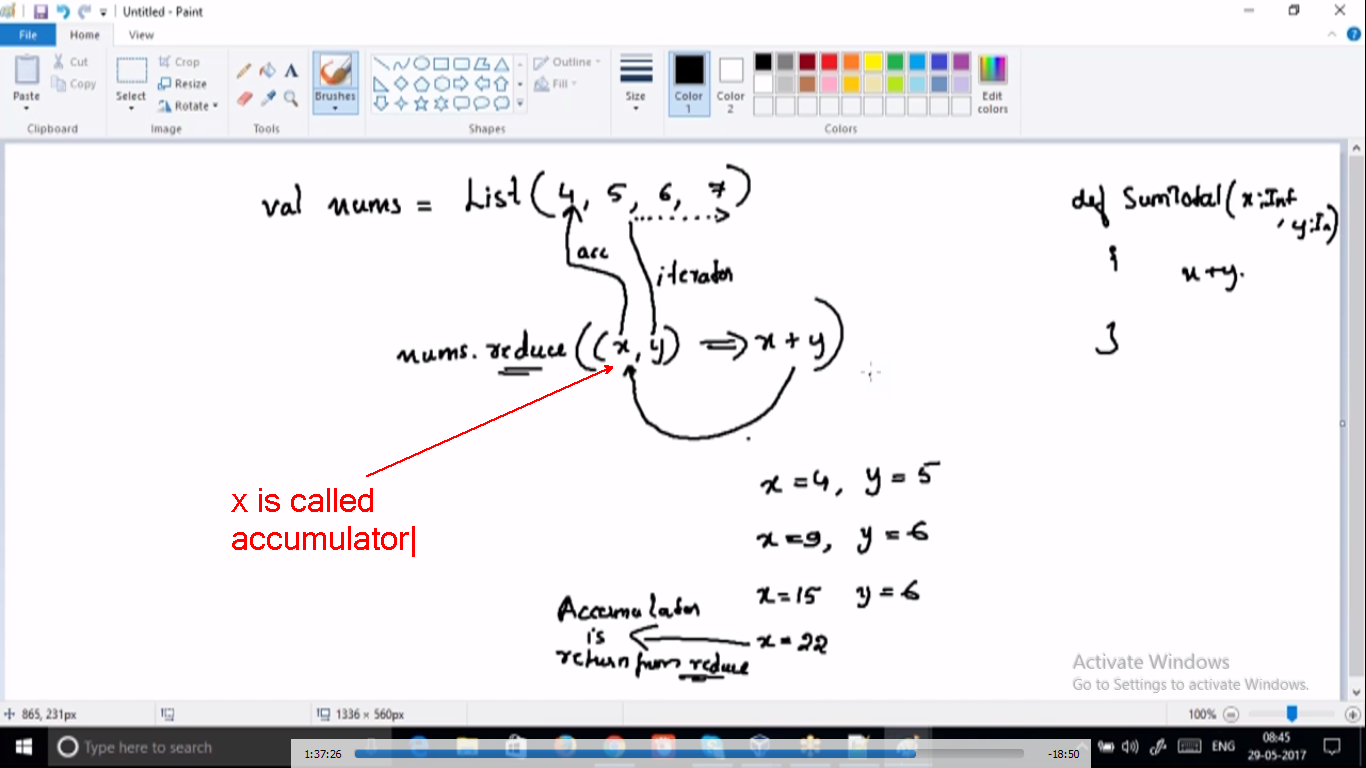 Untitled - Paint
File Home View
Paste Cut Copy Clipboard
Select Crop Resize Rotate Image
Tools
Brushes
Shapes
Outline Fill
Size
Color 1 Color 2 Edit colors Colors
val nums = List(4, 5, 6, 7)
acc
iterator
nums.reduce((x, y) => x + y)
def SumTotal(x:Int
, y:In)
{
x+y.
}
x is called
accumulator
x = 4, y = 5
x = 9, y = 6
x = 15 y = 6
x = 22
Accumulator
is
return from reduce
Activate Windows
Go to Settings to activate Windows.
865, 231px 1336 × 560px 100%
Type here to search
1:37:26 -18:50
ENG
08:45
29-05-2017